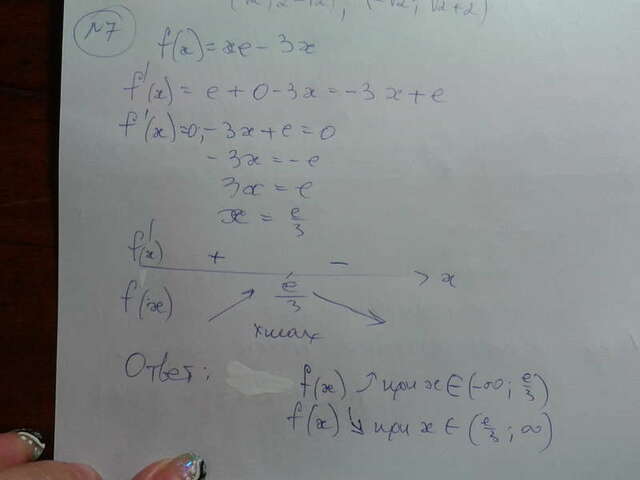 №7
f(x) = xe - 3x
f'(x) = e + 0 - 3x = -3x + e
f'(x) = 0, -3x + e = 0
-3x = -e
3x = e
x = e/3
f'(x) + - x
f(x) e/3
xmax
Ответ: f(x) ↗ при x ∈ (-∞; e/3)
f(x) ↘ при x ∈ (e/3; ∞)